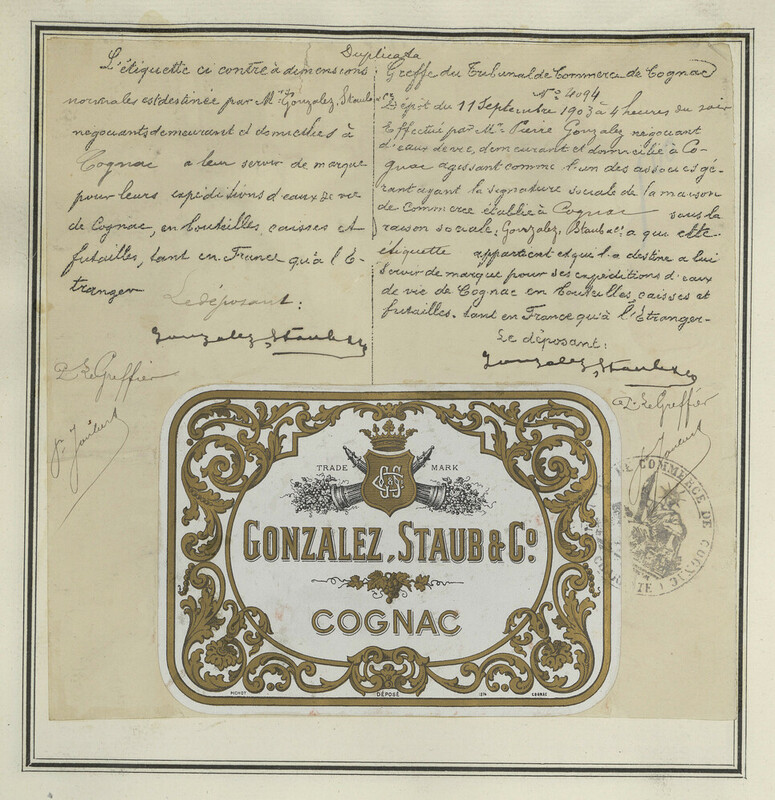 Duplicata
L'étiquette ci contre à dimensions
normales est destinée par Mrs Gonzalez, Staub &
négociants demeurant et domiciliés à
Cognac a leur servir de marque
pour leurs expéditions d'eaux de vie
de Cognac, en bouteilles, caisses et
futailles, tant en France qu'à l'É-
tranger
Le déposant:
Gonzalez, Staub & Co
P. Le Greffier
Greffe du Tribunal de Commerce de Cognac
No 4094
Dépôt du 11 Septembre 1903 à 4 heures du soir
Effectué par Mr. Pierre Gonzalez négociant
d'eaux de vie, demeurant et domicilié à Co-
gnac agissant comme l'un des associés gé-
rant ayant la signature sociale de la maison
de Commerce établie à Cognac sous la
raison sociale: Gonzalez, Staub & Co: a qui cette
étiquette appartient et qui l'a destine a lui
servir de marque pour ses expéditions d'eaux
de vie de Cognac en bouteilles, caisses et
futailles. tant en France qu'à l'Etranger-
Le déposant:
Gonzalez, Staub & Co
P. Le Greffier
TRADE MARK
GONZALEZ, STAUB & Co.
COGNAC
PICHOT DÉPOSÉ COGNAC
DE COMMERCE DE COGNAC